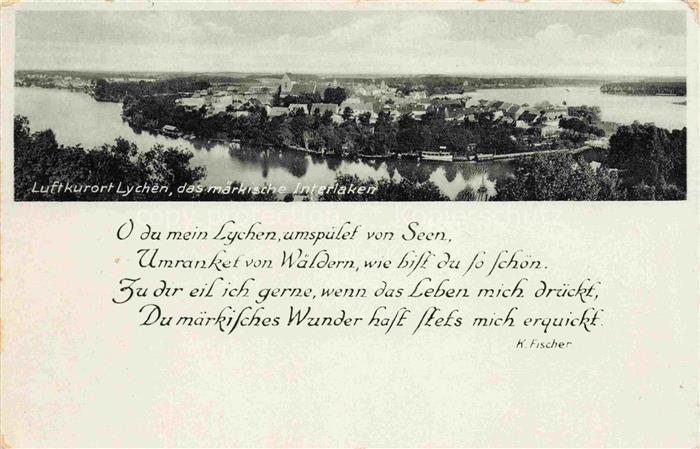 Luftkurort Lychen, das märkische Interlaken
copy protection · Kopierschutz
O du mein Lychen, umspület von Seen,
Umranket von Wäldern, wie bist du so schön.
Zu dir eil ich gerne, wenn das Leben mich drückt,
Du märkisches Wunder hast stets mich erquickt.
K. Fischer